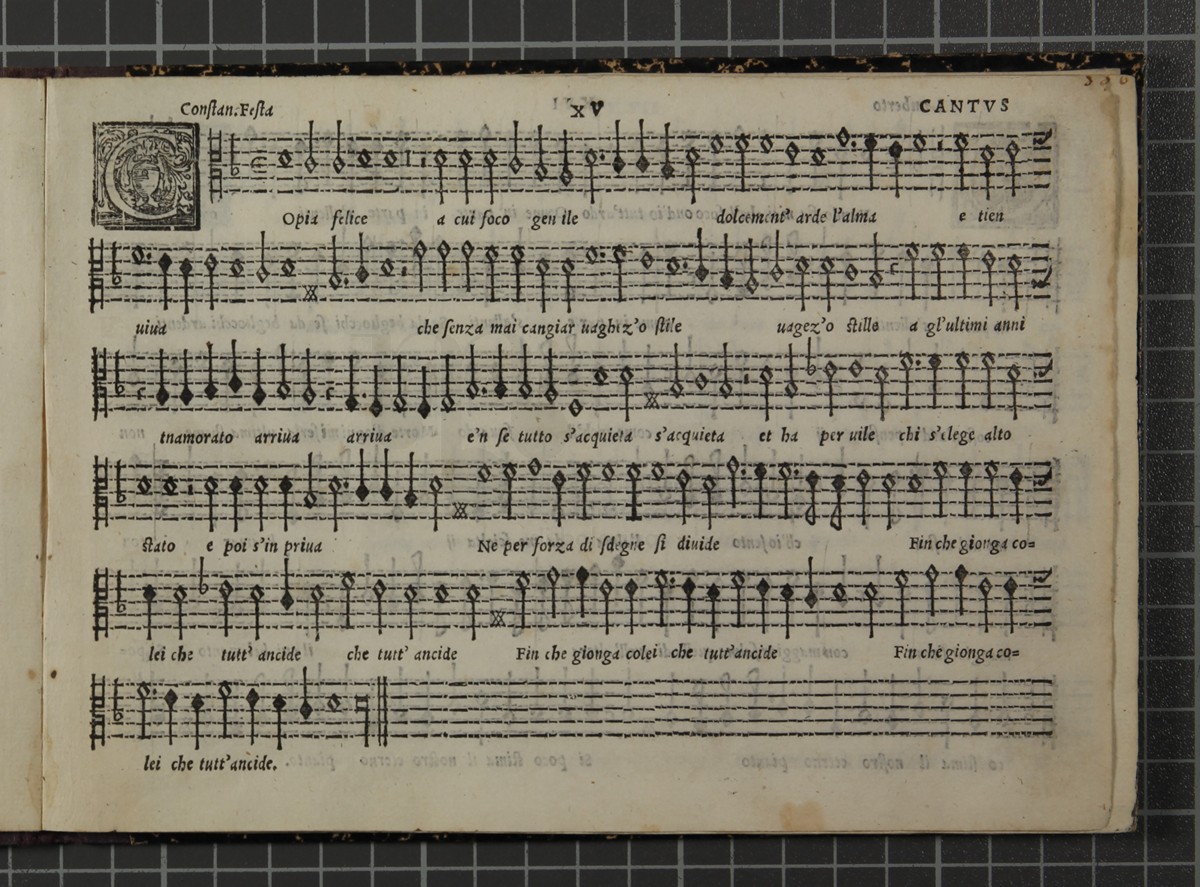 Conſtan. Feſta XV CANTVS
COpia felice a cui foco gen ile dolcement' arde l'alma e tien
uiua che ſenza mai cangiar uaghez'o ſtile uagez'o ſtille a gl'ultimi anni
tnamorato arriua arriua e'n ſe tutto s'acquieta s'acquieta et ha per uile chi s'elege alto
ſtato e poi s'in priua Ne per forza di ſdegne ſi diuide Fin che gionga co=
lei che tutt' ancide che tutt' ancide Fin che gionga colei che tutt'ancide Fin che gionga co=
lei che tutt'ancide.